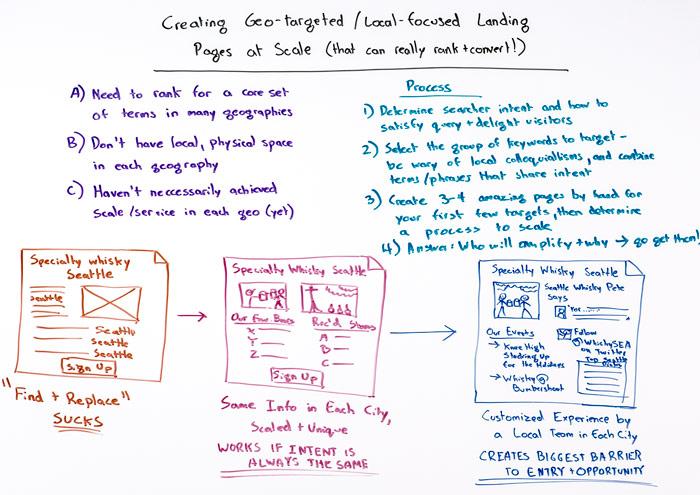 Creating Geo-targeted / Local-focused Landing
Pages at Scale (that can really rank + convert!)
A) Need to rank for a core set
of terms in many geographies
B) Don't have local, physical space
in each geography
C) Haven't neccessarily achieved
scale/service in each geo (yet)
Process
1) Determine searcher intent and how to
satisfy query + delight visitors
2) Select the group of keywords to target -
be wary of local colloquialisms, and combine
terms/phrases that share intent
3) Create 3-4 amazing pages by hand for
your first few targets, then determine
a process to scale
4) Answer: Who will amplify + why → go get them!
Specialty whisky
Seattle
Seattle
Seattle
Seattle
Seattle
Sign Up
"Find + Replace"
SUCKS
Specialty Whisky Seattle
Our Fav. Bars
X
Y
Z
Rec'd Stores
A
B
C
Sign Up
Same Info in Each City,
Scaled + Unique
WORKS IF INTENT IS
ALWAYS THE SAME
Specialty Whisky Seattle
Seattle Whisky Pete
says
Our Events
→ Knee High
Stocking Up
for the Holidays
→ Whisky @
Bumbershoot
Follow
@WhiskySEA
on Twitter
Top Seattle
Customized Experience by
a Local Team in Each City
CREATES BIGGEST BARRIER
TO ENTRY + OPPORTUNITY